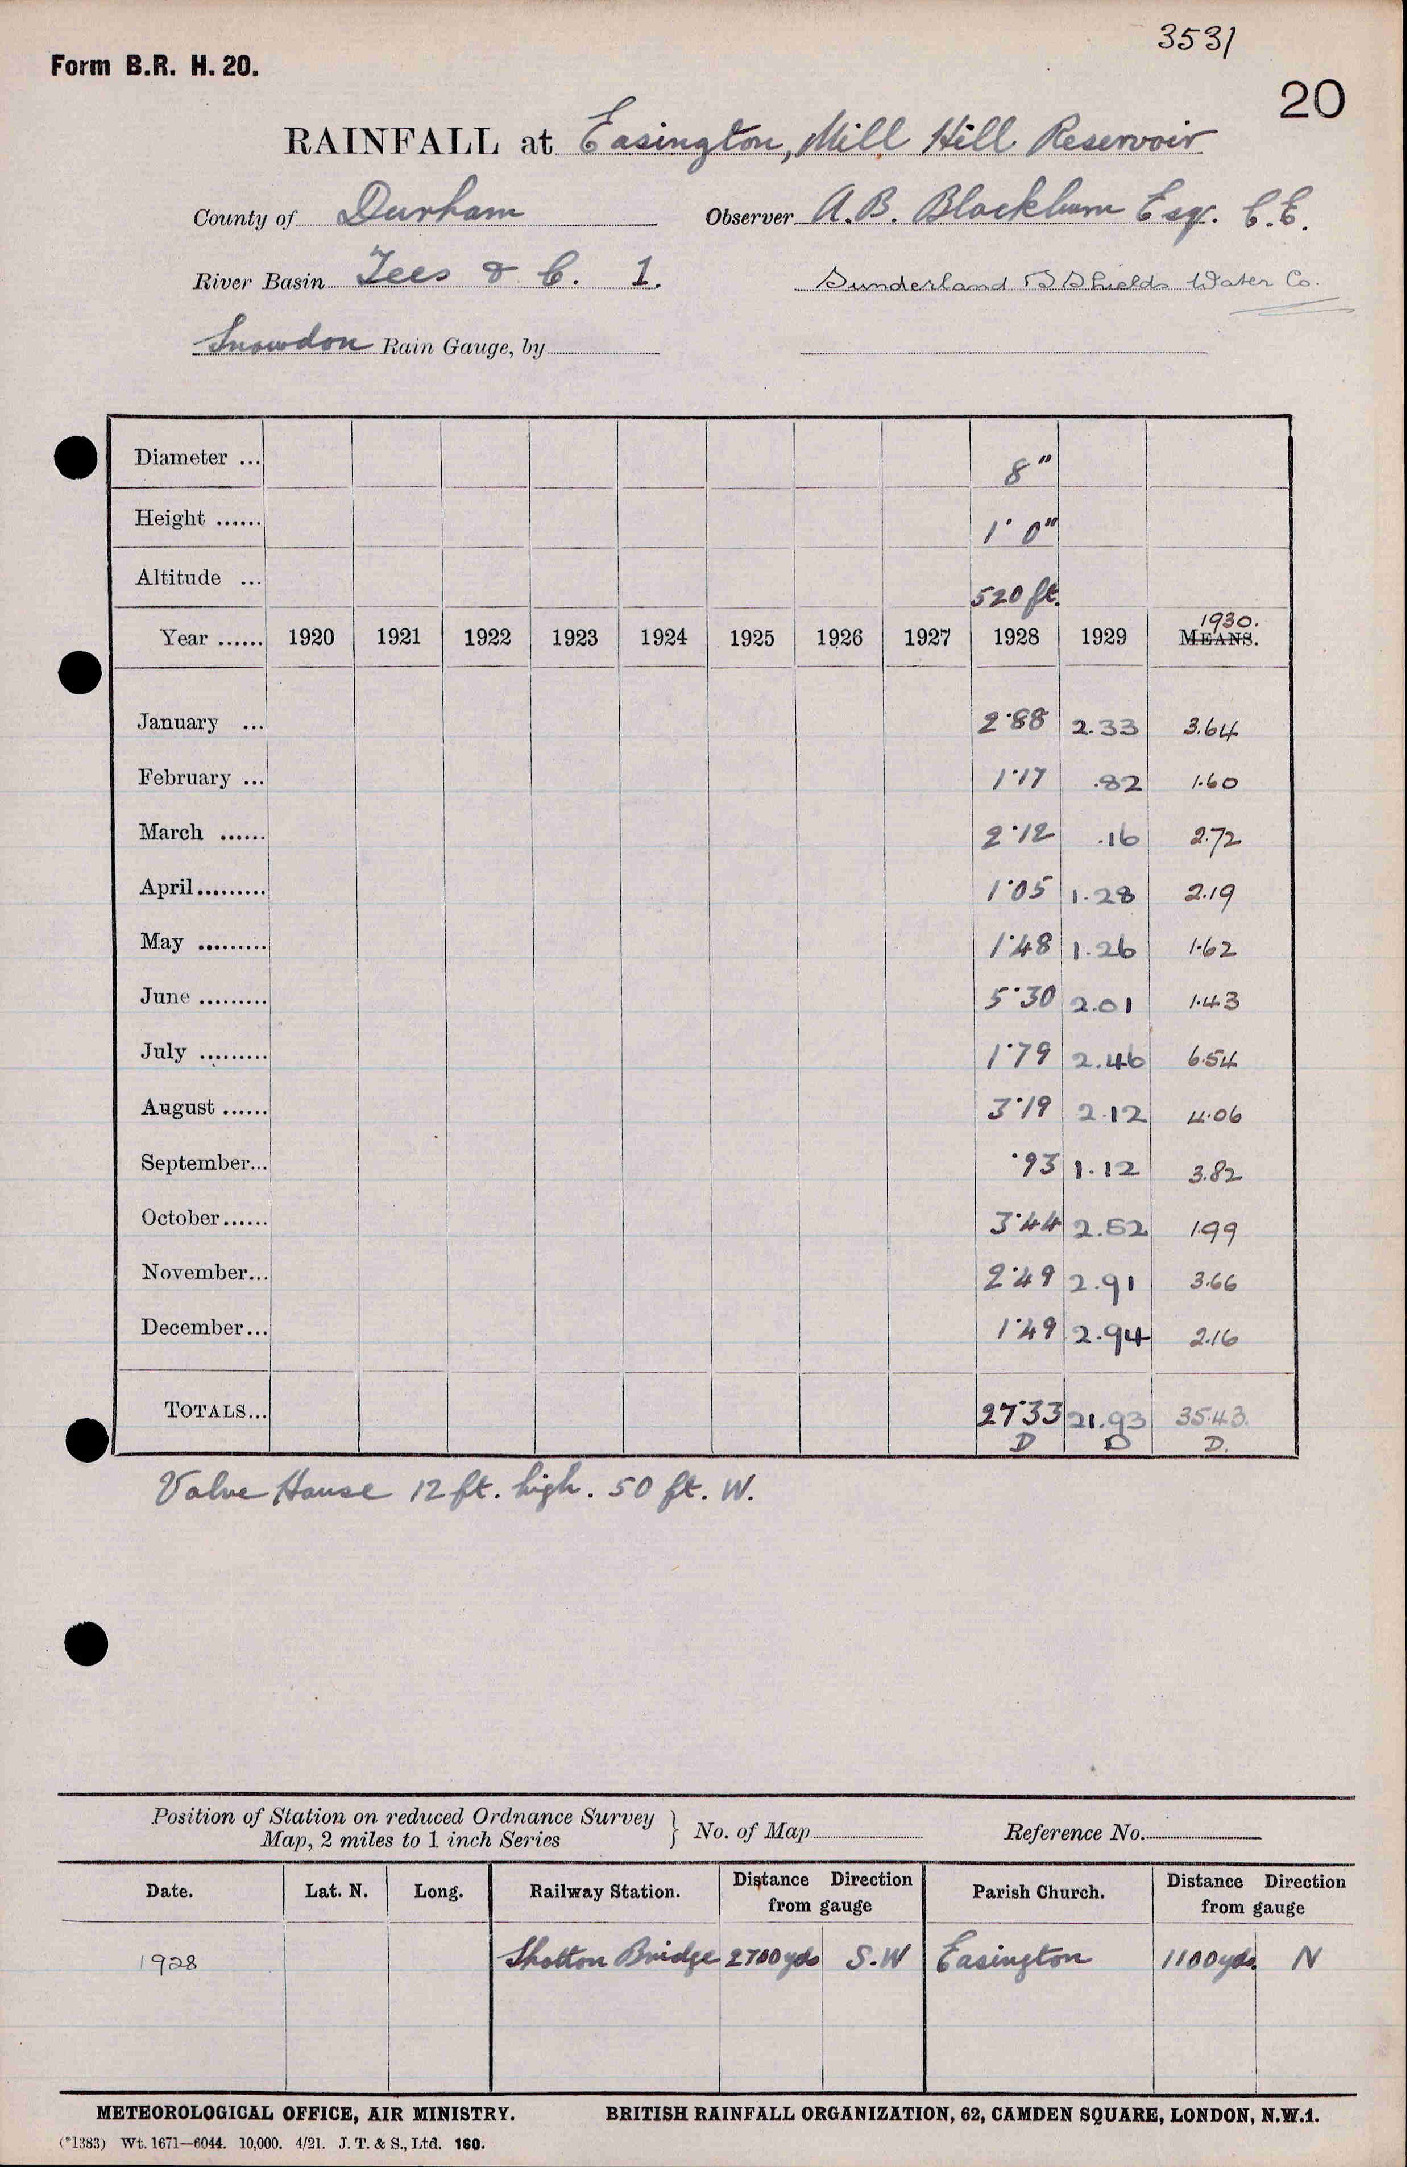 3531
Form B.R. H. 20.
20
RAINFALL at Easington, Mill Hill Reservoir
County of Durham Observer A.B. Blackburn Esq. C.E.
River Basin Tees & C. 1. Sunderland & S Shields Water Co.
Snowdon Rain Gauge, by
Diameter ... 8"
Height ...... 1' 0"
Altitude ... 520 ft.
1930.
Year ...... 1920 1921 1922 1923 1924 1925 1926 1927 1928 1929 MEANS.
January ... 2·88 2.33 3.64
February ... 1·17 .82 1.60
March ...... 2·12 .16 2.72
April......... 1·05 1.28 2.19
May ......... 1·48 1.26 1.62
June ......... 5·30 2.01 1.43
July ......... 1·79 2.46 6.54
August ...... 3·19 2.12 4.06
September... ·93 1.12 3.82
October...... 3·44 2.52 1.99
November... 2·49 2.91 3.66
December... 1·49 2.94 2.16
TOTALS... 27·33 21.93 35.43.
D D D.
Valve House 12 ft. high. 50 ft. W.
Position of Station on reduced Ordnance Survey
Map, 2 miles to 1 inch Series } No. of Map Reference No.
Date. Lat. N. Long. Railway Station. Distance Direction from gauge Parish Church. Distance Direction from gauge
1928 Shotton Bridge 2700 yds S.W Easington 1100 yds. N
METEOROLOGICAL OFFICE, AIR MINISTRY. BRITISH RAINFALL ORGANIZATION, 62, CAMDEN SQUARE, LONDON, N.W.1.
(*1383) Wt. 1671—6044. 10,000. 4/21. J. T. & S., Ltd. 160.